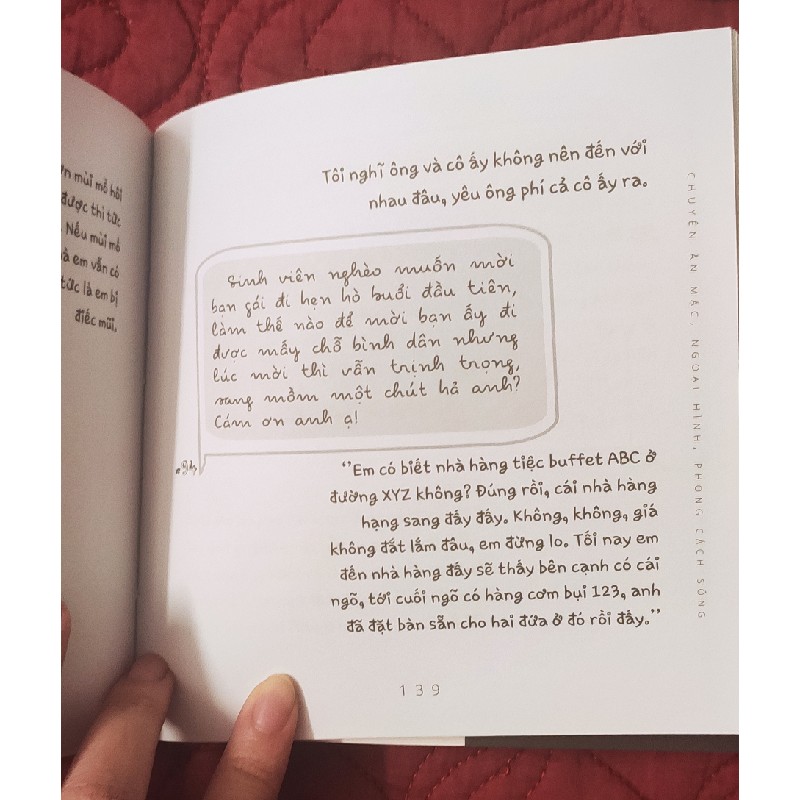 mùi mồ hôi
được thị tức
Nếu mùi mồ
em vẫn có
tức là em bị
điếc mũi.
Tôi nghĩ ông và cô ấy không nên đến với
nhau đâu, yêu ông phí cả cô ấy ra.
Sinh viên nghèo muốn mời
bạn gái đi hẹn hò buổi đầu tiên,
làm thế nào để mời bạn ấy đi
được mấy chỗ bình dân nhưng
lúc mời thì vẫn trịnh trọng,
sang mồm một chút hả anh?
Cám ơn anh ạ!
"Em có biết nhà hàng tiệc buffet ABC ở
đường XYZ không? Đúng rồi, cái nhà hàng
hạng sang đấy đấy. Không, không, giá
không đắt lắm đâu, em đừng lo. Tối nay em
đến nhà hàng đấy sẽ thấy bên cạnh có cái
ngõ, tới cuối ngõ có hàng cơm bụi 123, anh
đã đặt bàn sẵn cho hai đứa ở đó rồi đấy."
CHUYỆN ĂN MẶC, NGOẠI HÌNH, PHONG CÁCH SỐNG
139